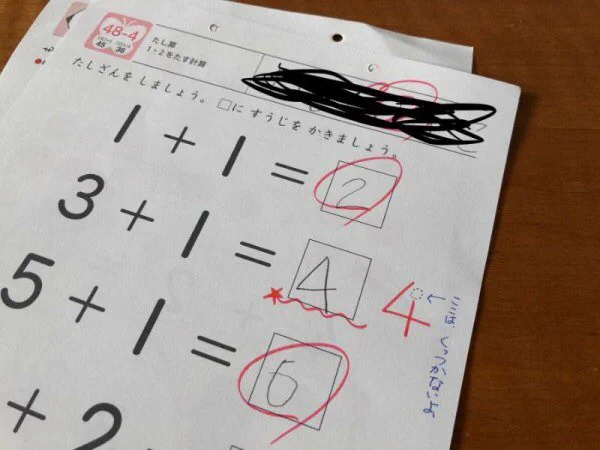 48-4
たし算
1・2をたす計算
たしざんを しましょう。 □に すうじを かきましょう。
1 + 1 = 2
3 + 1 = 4
4
ここは、くっつかないよ
5 + 1 = 6
+ 2